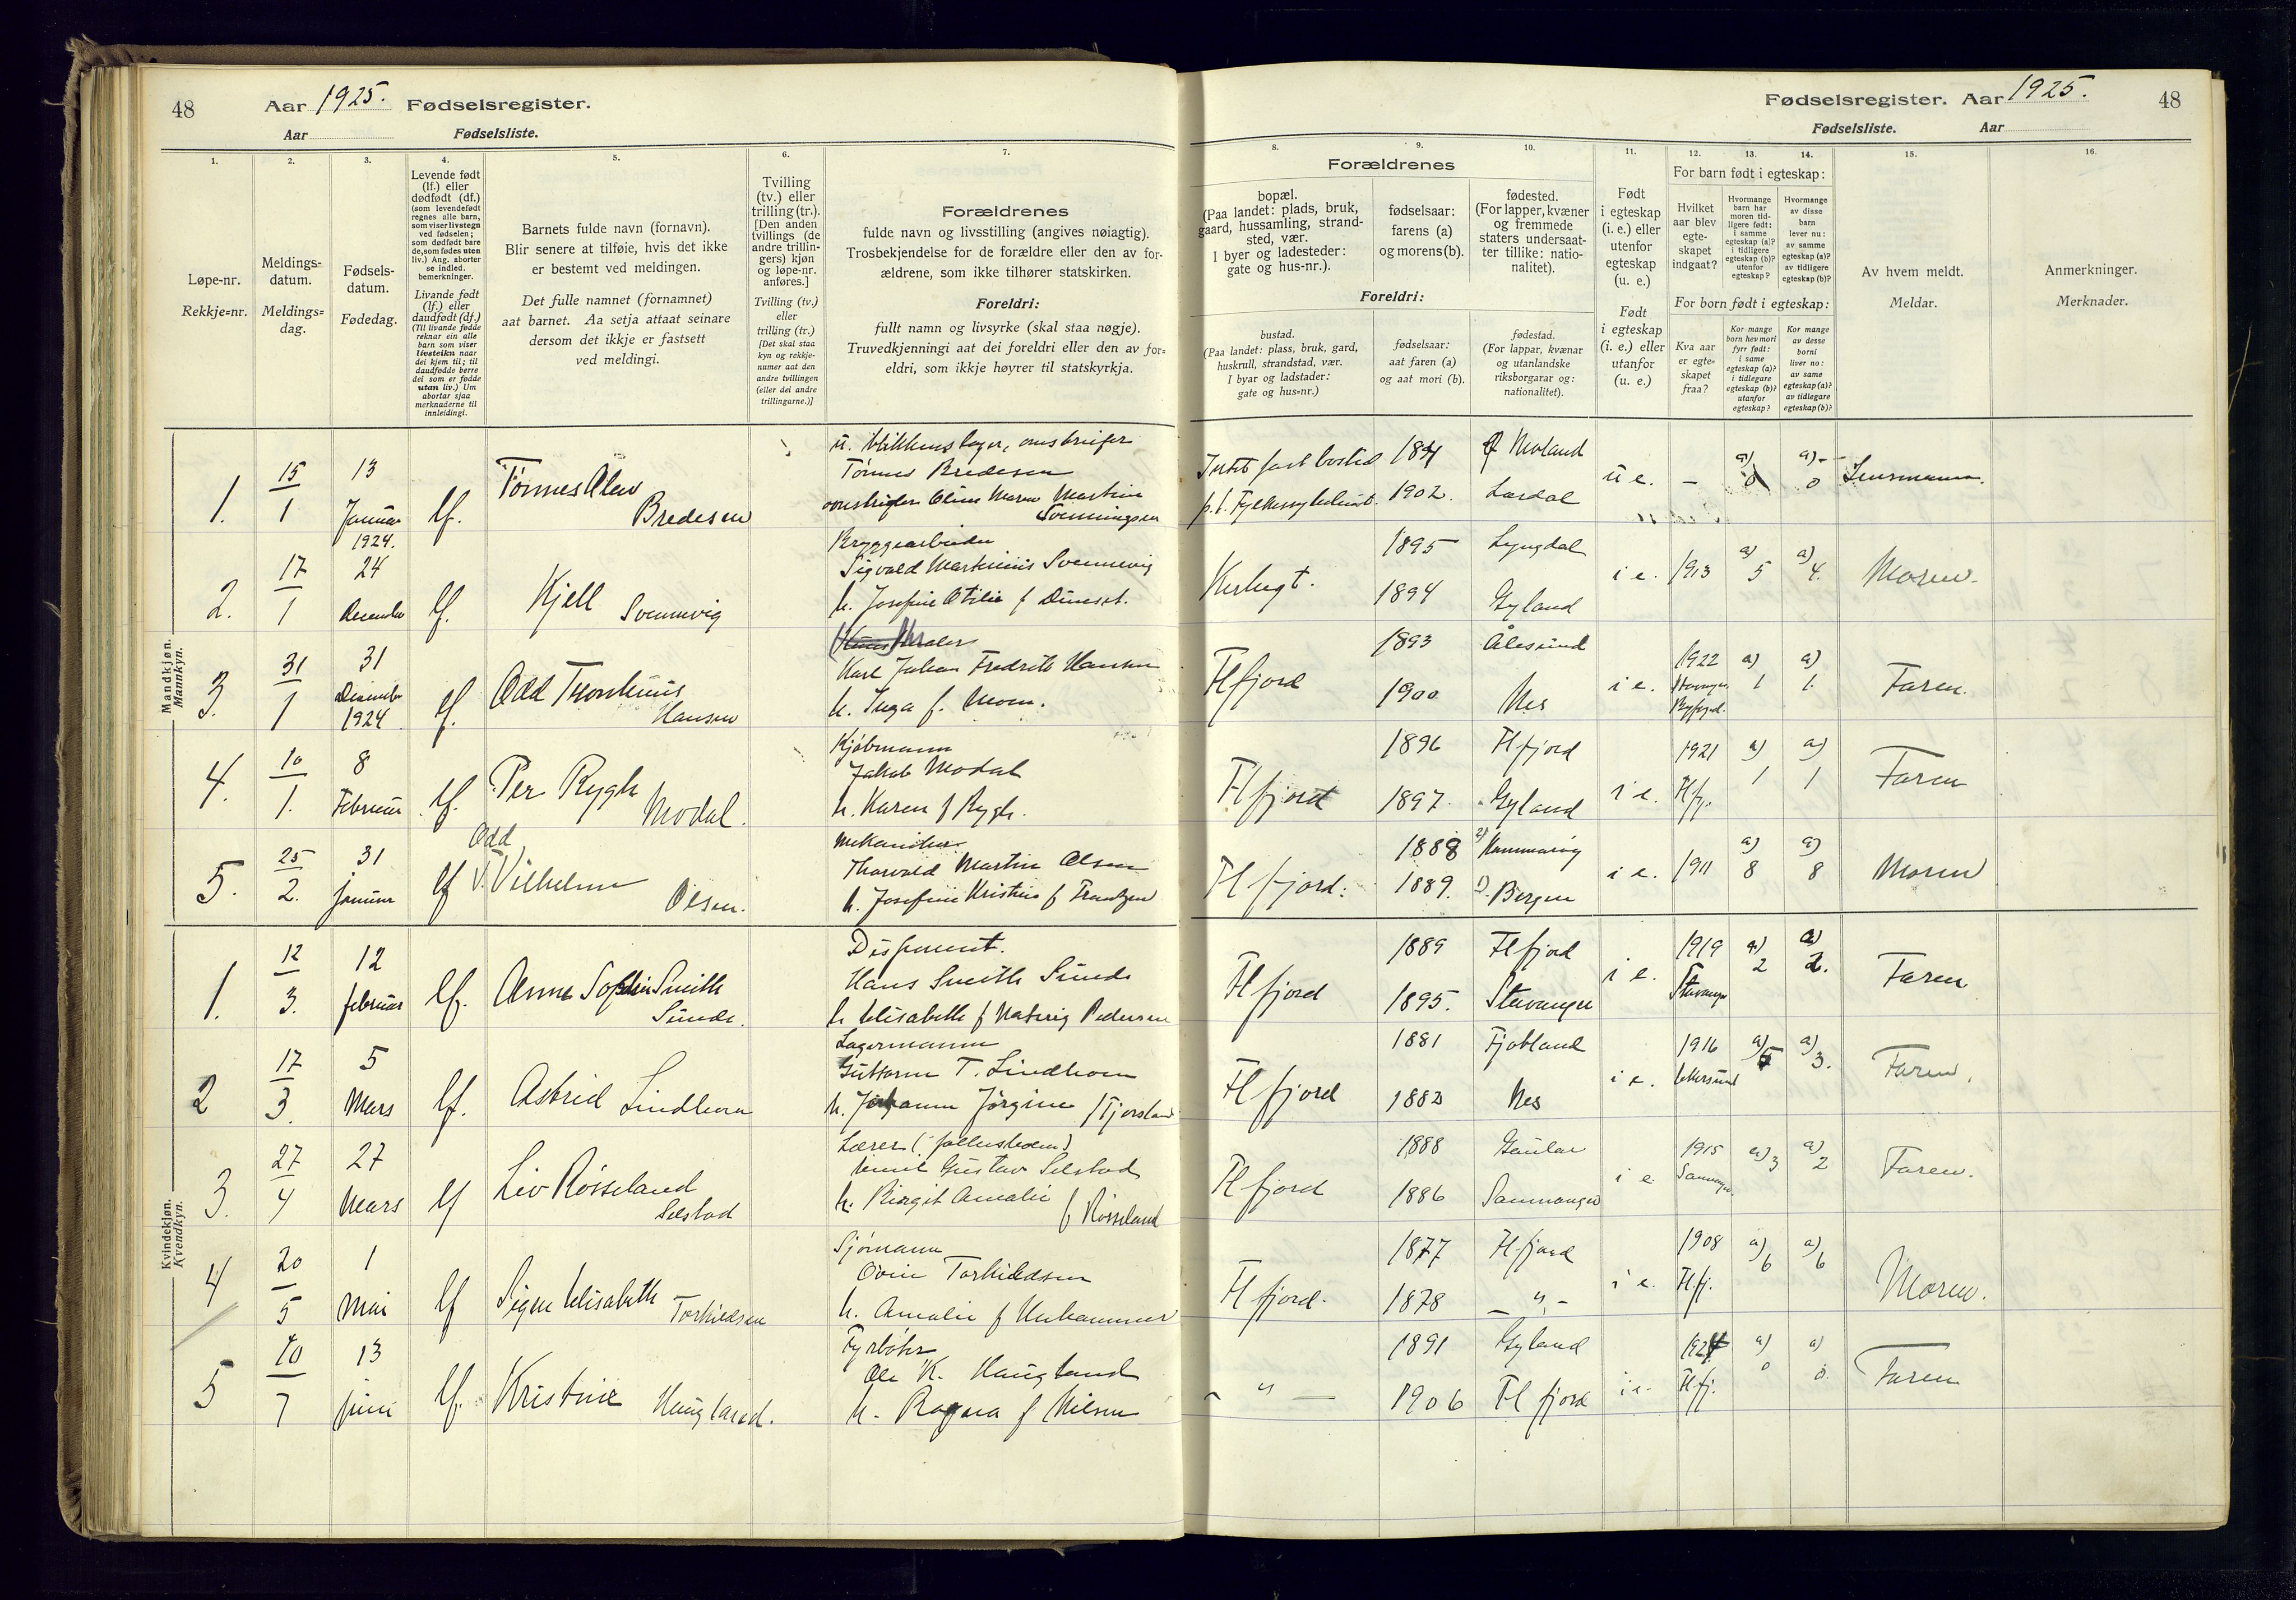 48 Aar 1925. Fødselsregister.
Aar Fødselsliste.
1. 2. 3. 4. 5. 6. 7.
Løpe-nr.
Rekkje=nr.
Meldings-
datum.
Meldings=
dag.
Fødsels-
datum.
Fødedag.
Levende født
(lf.) eller
dødfødt (df.)
(som levendefødt
regnes alle barn,
som viser livstegn
ved fødselen;
som dødfødt bare
de, som fødes uten
liv.) Ang. aborter
se indled.
bemerkninger.
Livande født
(lf.) eller
daudfødt (df.)
(Til livande fødde
reknar ein alle
barn som viser
livsteikn naar
dei kjem til; til
daudfødde berre
dei som er fødde
utan liv.) Um
abortar sjaa
merknaderne til
innleidingi.
Barnets fulde navn (fornavn).
Blir senere at tilføie, hvis det ikke
er bestemt ved meldingen.
Det fulle namnet (fornamnet)
aat barnet. Aa setja attaat seinare
dersom det ikkje er fastsett
ved meldingi.
Tvilling
(tv.) eller
trilling (tr.).
[Den anden
tvillings (de
andre trillin-
gers) kjøn
og løpe-nr.
anføres.]
Tvilling (tv.)
eller
trilling (tr.)
[Det skal staa
kyn og rekkje-
numer aat den
andre tvillingen
(eller dei andre
trillingarne.)]
Forældrenes
fulde navn og livsstilling (angives nøiagtig).
Trosbekjendelse for de forældre eller den av for-
ældrene, som ikke tilhører statskirken.
Foreldri:
fullt namn og livsyrke (skal staa nøgje).
Truvedkjenningi aat dei foreldri eller den av for=
eldri, som ikkje høyrer til statskyrkja.
Mandkjøn.
Mannkyn.
1. 15/1 13 Januar lf. Tønnes Olen Bredesen
u. blikkenslager, omstreifer
Tønnes Bredesen
omstreifer Oline Maren Martine
Svenningsen
2. 17/1 1924. 24 December lf. Kjell Svennevig
Bryggearbeider
Sigvald Martinius Svennevig
h. Josefine Otilie f
3. 31/1 31 December 1924 lf. Odd Hansen
Maler
Karl Johan Fredrik Hansen
h. Inga f. Moen.
4. 10/1. 8 Februar lf. Per Rygh Modal.
Kjøbmann
Jakob Modal
h. Karen f Rygh.
5. 25/2. 31 januar lf Odd V. Vilhelm Olsen.
Mekaniker
Thorvald Martin Olsen
h. Josefine Kristine f Frantzen
Kvindekjøn.
Kvendkyn.
1. 12/3. 12 februar lf. Anna Sophie Smith Sunde.
Disponent.
Hans Smith Sunde
h Elisabeth f Pedersen
2 17/3. 5 Mars lf. Astrid Lindhom
Lagermann
Guttorm T. Lindhom
h. Johanne Jørgine f Tjorsland
3. 27/4 27 Mars lf Liv Røsseland Selstad
Lærer
Emil Gustav Selstad
h. Birgit Amalie f Røsseland
4 20/5 1 Mai lf Signe Elisabeth Torkildsen
Sjømann
Torkildsen
h. Amalie f Urhammer
5 10/7 13 juni lf. Kristine Haugland.
Fyrbøter
Ole K. Haugland
h. Ragna f Nilsen
Fødselsregister. Aar 1925. 48
Fødselsliste. Aar
8. 9. 10. 11. 12. 13. 14. 15. 16.
Forældrenes
bopæl.
(Paa landet: plads, bruk,
gaard, hussamling, strand-
sted, vær.
I byer og ladesteder:
gate og hus-nr.).
fødselsaar:
farens (a)
og morens (b).
fødested.
(For lapper, kvæner
og fremmede
staters undersaat-
ter tillike: natio-
nalitet).
Foreldri:
bustad.
(Paa landet: plass, bruk, gard,
huskrull, strandstad, vær.
I byar og ladstader:
gate og hus=nr.)
fødselsaar:
aat faren (a)
og aat mori (b).
fødestad.
(For lappar, kvænar
og utanlandske
riksborgarar og:
nationalitet).
Født
i egteskap
(i. e.) eller
utenfor
egteskap
(u. e.)
Født
i egteskap
(i. e.) eller
utanfor
(u. e.)
For barn født i egteskap:
Hvilket
aar blev
egte-
skapet
indgaat?
Hvormange
barn har
moren tid-
ligere født:
i samme
egteskap (a)?
i tidligere
egteskap (b)?
utenfor
egteskap?
Hvormange
av disse
barn
lever nu:
av samme
egteskap (a)?
av tidligere
egteskap (b)?
For born født i egteskap:
Kva aar
er egte=
skapet
fraa?
Kor mange
born hev mori
fyrr født:
i same
egteskap (a)?
i tidlegare
egteskap (b)?
utanfor
egteskap?
Kor mange
av desse
borni
liver no:
av same
egteskap (a)?
av tidlegare
egteskap (b)?
Av hvem meldt.
Meldar.
Anmerkninger.
Merknader.
Intet fast bosted 1894 Moland
1902. Lærdal
u e. – a) 0 a) – 0 Lensmann.
1895 Lyngdal
1894 Gyland
i e. 1913 a) 5 a) 4. Moren.
Flfjord 1893 Ålesund
1900 Nes
i e. 1922 a) 1 a) 1. Faren.
Flfjord 1896 Flfjord
1897. Gyland
i e. 1921 Flfj. a) 1 a) 1 Faren
Flfjord. 1888 2)
1889. 1). Bergen
i e. 1911 a) 8 a) 8 Moren
Flfjord 1889 Flfjord
1895. Stavanger
i e. 1919 Stavanger a) 2 a) 2. Faren
Flfjord 1881 Fjotland
1883 Nes
i e. 1916 a) a) 3. Faren.
Flfjord 1888 Gaular
1886 Samnanger
i e. 1915 Samnanger. a) 3 a) 2 Faren.
Flfjord. 1877 Flfjord
1878 – " –
i e. 1908 Flfj. a) 6 a) 6 Moren.
– " – 1891 Gyland
1906 Flfjord
i e. 1924 Flfj. a) 0 a) 0. Faren